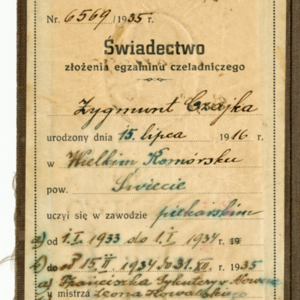 Nr. 6569/1935 r.
Świadectwo
złożenia egzaminu czeladniczego
Zygmunt Czajka
urodzony dnia 15. lipca 1916 r.
w Wielkim Komórsku
pow. Świecie
uczył się w zawodzie piekarskim
a) od 1.I 1933 do 1.I 1934 r. 19
b) od 15.II 1934 do 31.XII. 1935
a) Franciszka Sykutery
u mistrza Leona Kowalskiego